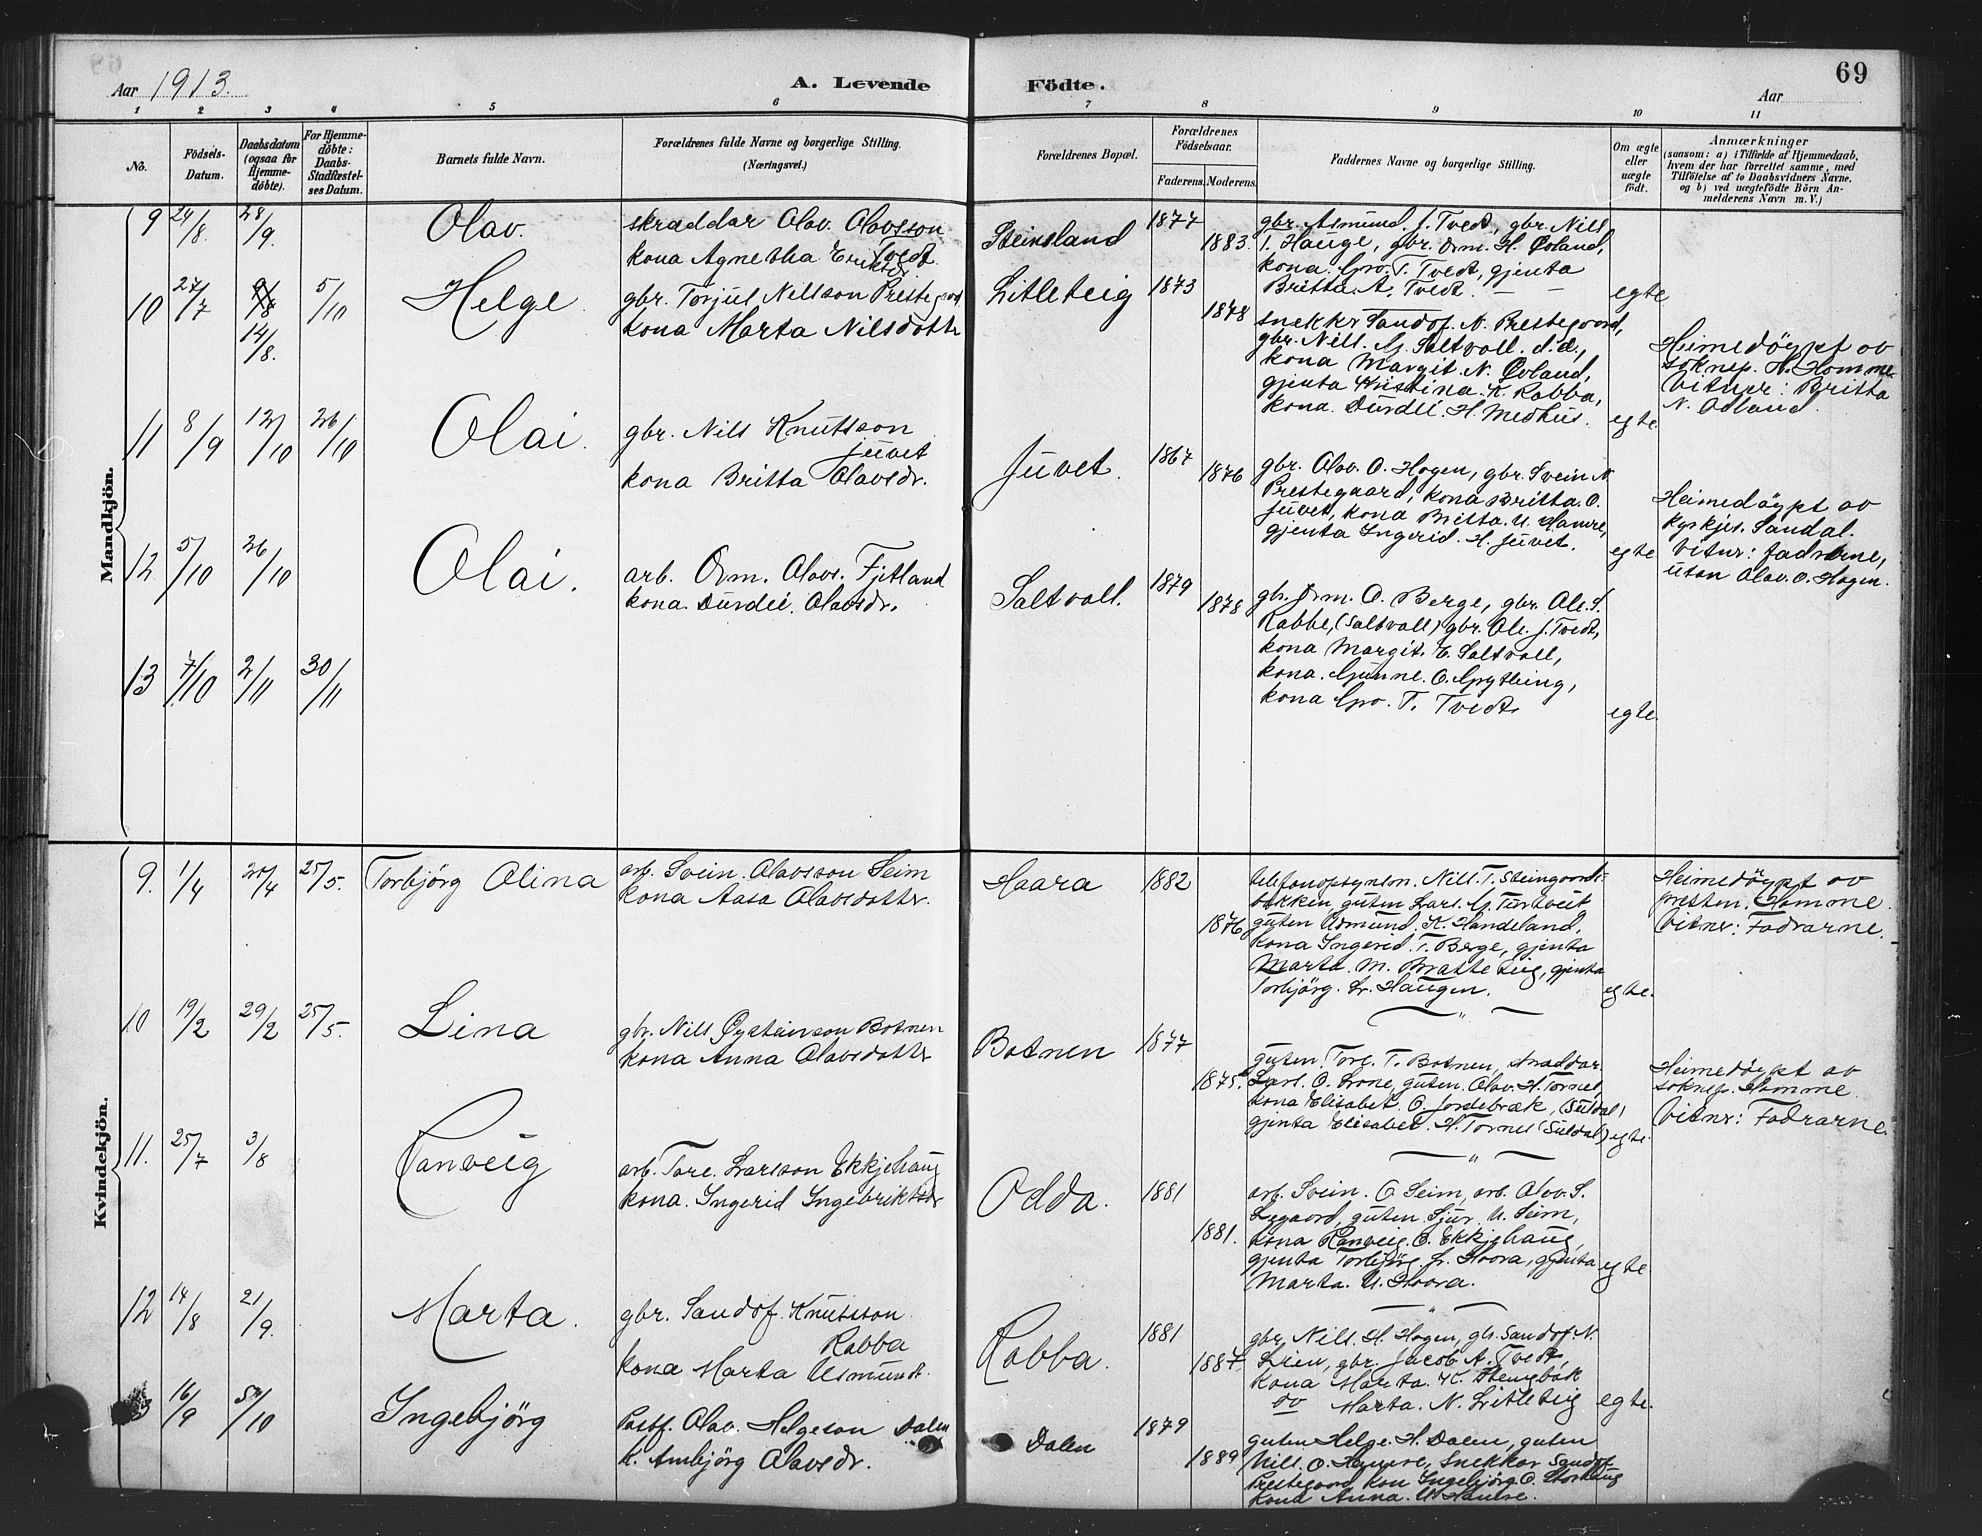 69
Aar 1913.
A. Levende Födte.
Aar
1 2 3 4 5 6 7 8 9 10 11
No.
Födsels-Datum.
Daabsdatum (ogsaa for Hjemme-döbte).
For Hjemme-döbte: Daabs-Stadfæstel-ses Datum.
Barnets fulde Navn.
Forældrenes fulde Navne og borgerlige Stilling.
(Næringsvei.)
Forældrenes Bopæl.
Forældrenes Födselsaar.
Faderens. Moderens.
Faddernes Navne og borgerlige Stilling.
Om ægte eller uægte födt.
Anmærkninger
(saasom: a) i Tilfælde af Hjemmedaab,
hvem der har forrettet samme, med
Tilföielse af to Daabsvidners Navne.
og b) ved uægtefödte Börn An-
melderens Navn m. V.)
Mandkjön.
9 24/8. 28/9. Olav.
skraddar Olav. Olavsson Tvedt
kona Agnetha Eriksdr.
Steinsland 1877 1883.
gbr. Asmund. J. Tvedt, gbr. Nils
T. Hauge, gbr. Orm. H. Övland,
kona. Gro. T. Tvedt, gjenta
Britta. A. Tvedt. — —
egte
10 27/7 9/8 14/8. 5/10 Helge.
gbr. Torjul Nilsson Prestegard
kona Marta Nilsdotter
Litleteig 1873 1878
snekkr Sandof. N. Prestegaard,
gbr. Nils. G. Saltvoll. d.æ.,
kona Margit. N. Övland,
gjenta Kristina. K. Rabba,
kona. Durdei. H. Medhus.
egte.
Heimedöypt av
sóknep. H. Homme.
Vitner: Britta
N. Odland.
11 8/9 12/10 26/10 Olai.
gbr. Nils Knutsson
Juvet
kona Britta Olavsdr.
Juvet. 1867 1876
gbr. Olav. O. Hogen, gbr. Svein N
Prestegaard, kona Britta. O.
Juvet, kona Britta. U. Hamre,
gjenta Ingerid. H. Juvet.
egte
Heimedöypt av
kyrkjes. Sandal.
Vitnr: fadrarne,
utan Olav. O. Hogen.
12 5/10 26/10 Olai.
arb. Orm. Olavs. Fjetland
kona. Durdei. Olavsdr.
Saltvoll. 1879 1878
gb. Orm. O. Berge, gbr. Ole. S.
Rabbe, (Saltvoll) gbr. Ole. J. Tvedt,
kona Margit. E. Saltvoll,
kona. Gunne. O. Grytting,
kona Gro. T. Tvedt.
egte.
13 7/10 2/11 30/11
Kvindekjön.
9. 1/4 20/4 25/5. Torbjörg Olina
arb. Svein. Olavsson Seim
kona Aasa Olavsdotter.
Haara 1882 1876
telefonopsynsm. Nils. T. Steingaards-
bakken, guten Lars. G. Turtveit
guten Asmund. K. Handeland,
kona Ingerid. T. Berge, gjenta
Marta. M. Bratteteig, gjenta
Torbjörg. Lr. Haugen.
egte.
Heimedöypt av
presten. Homme.
Vitnr: Fadrarne.
10 19/2 29/2 25/5. Lina
gbr. Nils Öysteinson Botnen
kona Anna Olavsdotter
Botnen 1877 1875.
guten. Tore. T. Botnen, skraddar
Lars. O. Lone, guten. Olav. H. Tornes,
kona Elisabet. O. Jordebræk, (Suldal)
gjenta Elisabet. H. Tornes (Suldal)
egte.
Heimedöypt av
soknep. Homme.
Vitnr: Fadrarne.
11. 25/7 3/8 Ranveig
arb. Tore. Larsson Ekkjehaug
kona. Ingerid Ingebriktsdr
Odda. 1881 1881.
arb. Svein. O. Seim, arb. Olav. S.
Legaard, guten. Sjur. U. Seim,
kona Ranveig. O. Ekkjehaug,
gjenta Torbjörg Jr. Hoora, gjenta
Marta. U. Hoora.
egte
12 14/8 21/9. Marta.
gbr. Sandof. Knutsson
Rabba
kona Marta Asmundr.
Rabba. 1881 1887
gbr. Nils. H. Hogen, gb. Sandof N.
Lien, gbr. Jacob A. Tvedt
kona Marta. K. Stengbók
do Marta. N. Litleteig
egte.
16/9 5/10 Ingebjörg
Postf. Olav. Helgeson Dalen
k. Ambjörg Olavsdr.
Dalen 1879 1889
guten Helge. H. Dalen, guten
Nils. O. Hamre, Snekkar Sandof
Prestegaard, kon Ingebjörg. O. Storhaug
kona Anna. U. Hamre.